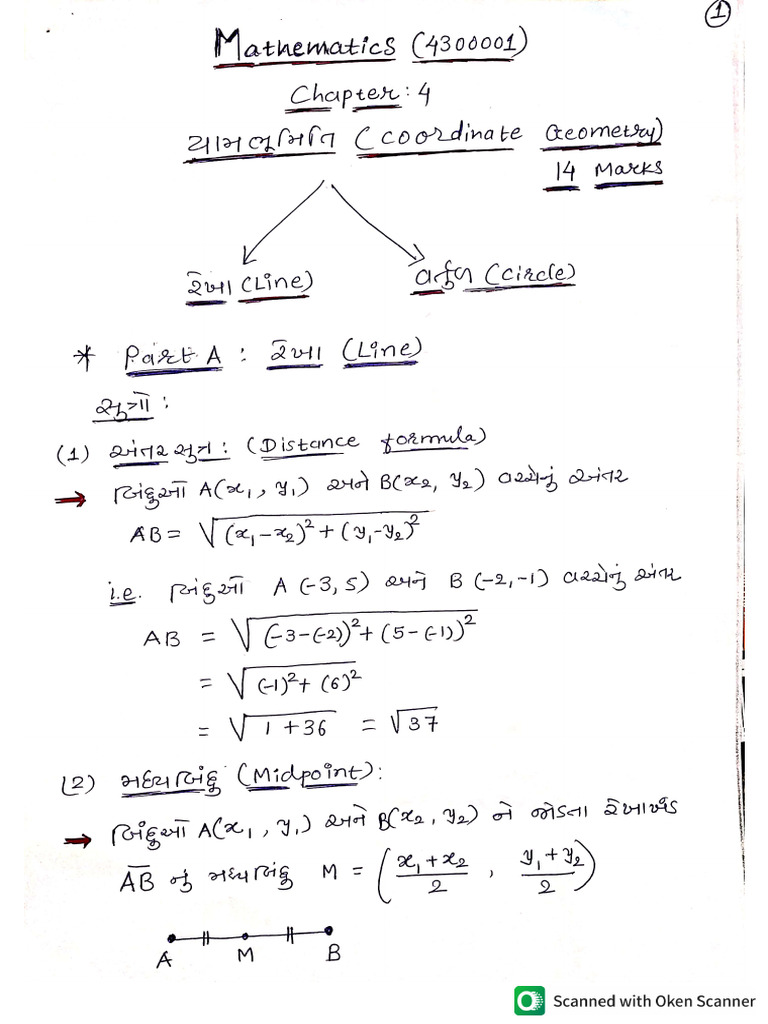 1
Mathematics (4300001)
Chapter: 4
યામભૂમિતિ (Coordinate Geometry)
14 Marks
રેખા (Line) વર્તુળ (circle)
* Part A : રેખા (Line)
સૂત્રો :
(1) અંતર સૂત્ર : (Distance formula)
→ બિંદુઓ A(x₁, y₁) અને B(x₂, y₂) વચ્ચેનું અંતર
AB = √((x₁-x₂)² + (y₁-y₂)²)
i.e. બિંદુઓ A (-3, 5) અને B (-2, -1) વચ્ચેનું અંતર
AB = √((-3-(-2))² + (5-(-1))²)
= √((-1)² + (6)²)
= √(1 + 36) = √37
(2) મધ્યબિંદુ (Midpoint) :
→ બિંદુઓ A(x₁, y₁) અને B(x₂, y₂) ને જોડતા રેખાખંડ
A̅B̅ નું મધ્યબિંદુ M = ((x₁+x₂)/2 , (y₁+y₂)/2)
A M B
Scanned with Oken Scanner